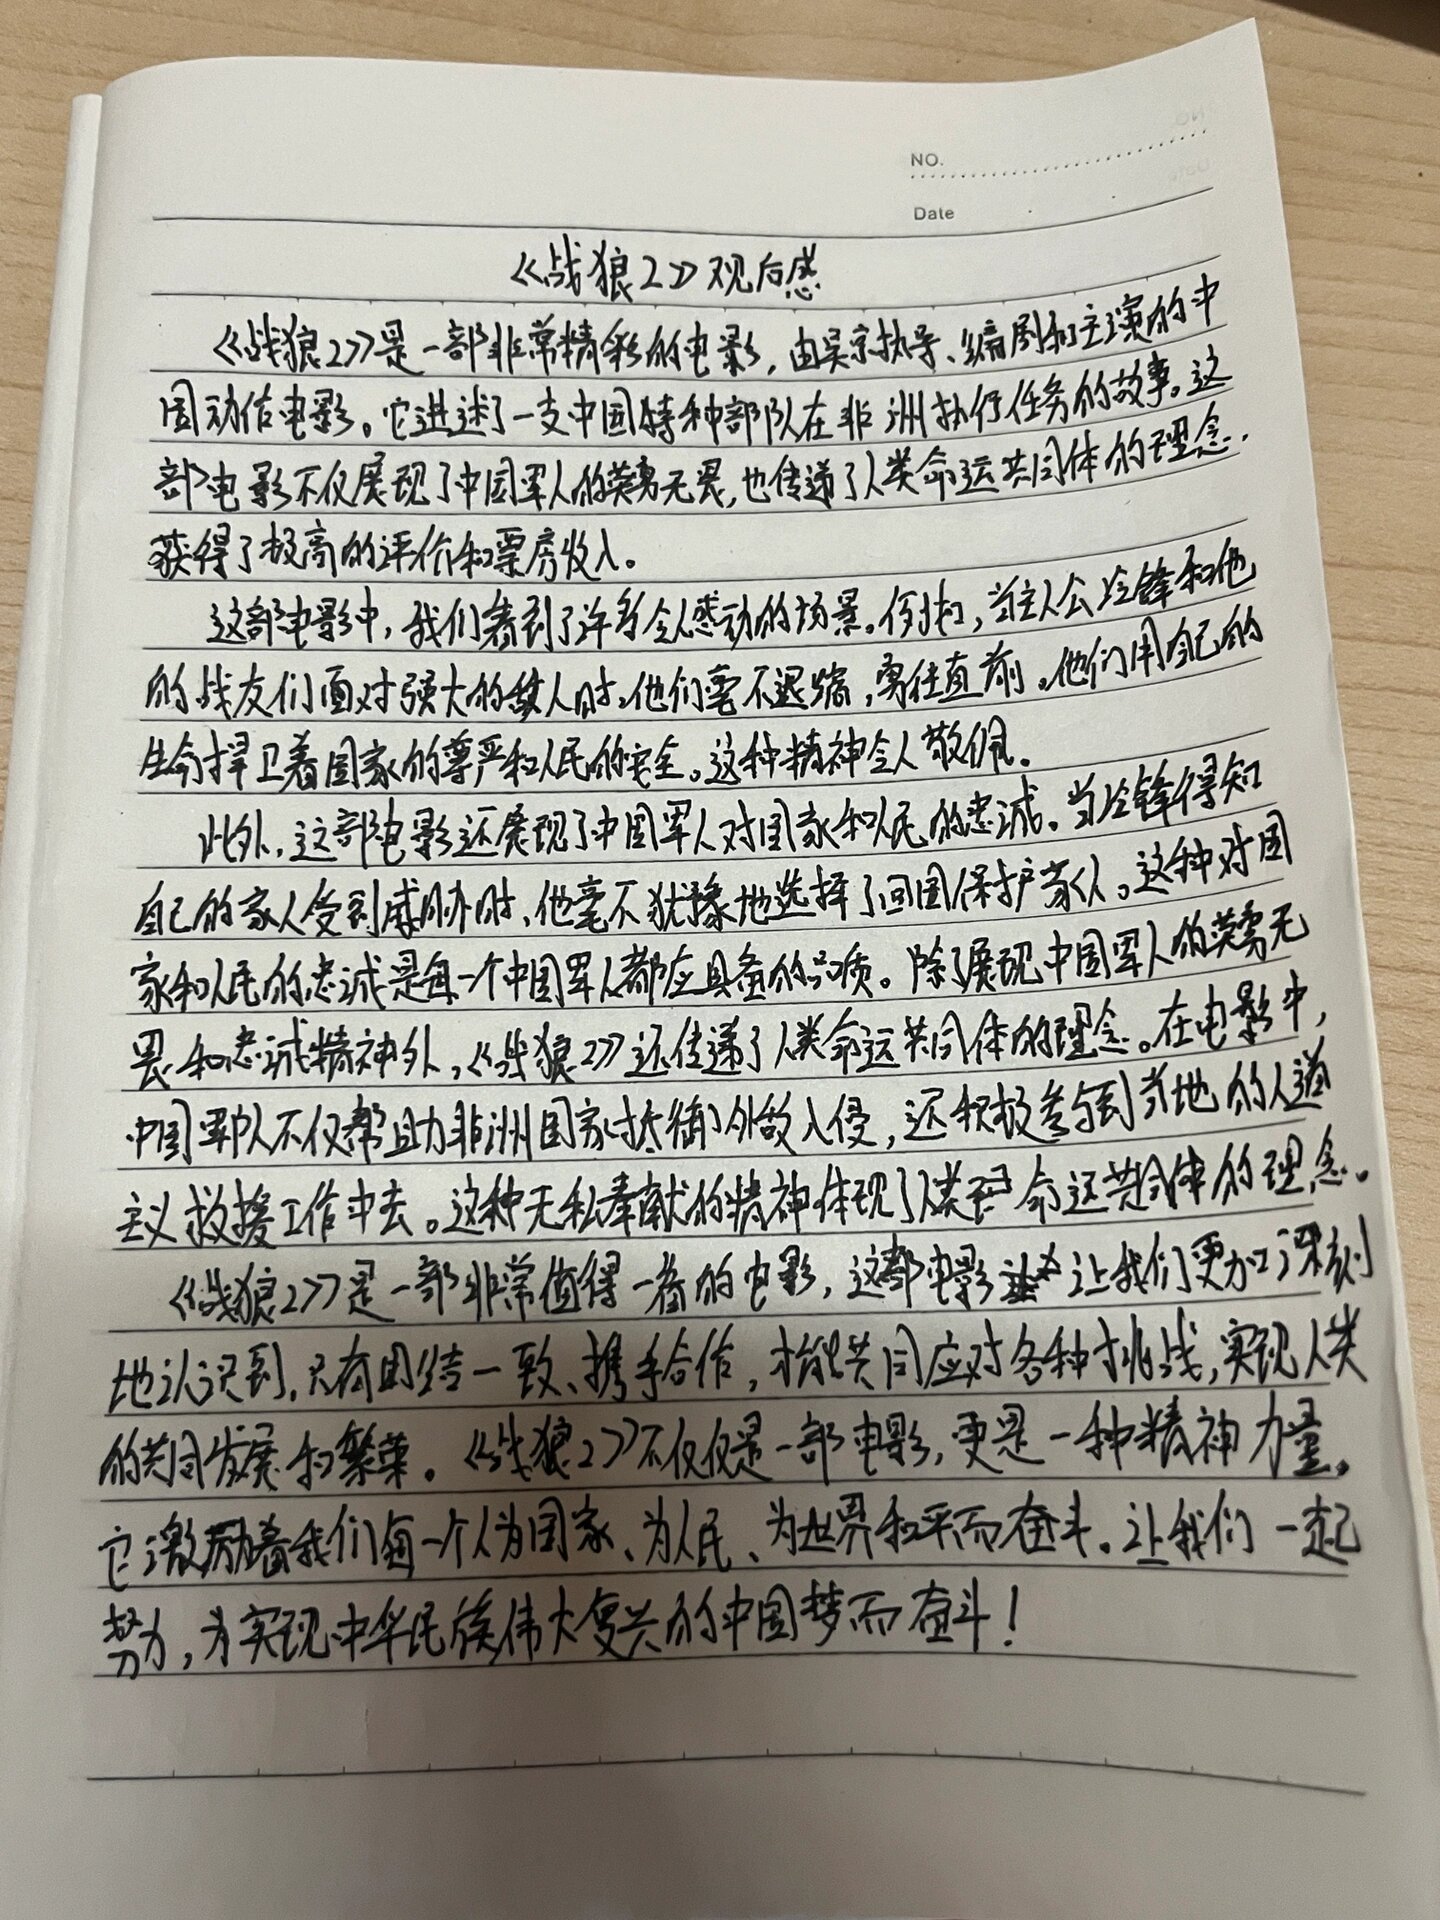 NO.
Date
《战狼2》观后感
《战狼2》是一部非常精彩的电影，由吴京执导、编剧和主演的中
国动作电影。它讲述了一支中国特种部队在非洲执行任务的故事。这
部电影不仅展现了中国军人的英勇无畏，也传递了人类命运共同体的理念.
获得了极高的评价和票房收入。
这部电影中，我们看到了许多令人感动的场景。例如，当主人公冷锋和他
的战友们面对强大的敌人时，他们毫不退缩，勇往直前。他们用自己的
生命捍卫着国家的尊严和人民的安全。这种精神令人敬佩。
此外，这部电影还展现了中国军人对国家和人民的忠诚。当冷锋得知
自己的家人受到威胁时，他毫不犹豫地选择了回国保护家人。这种对国
家和人民的忠诚是每一个中国军人都应具备的品质。除了展现中国军人的英勇无
畏和忠诚精神外，《战狼2》还传递了人类命运共同体的理念。在电影中，
中国军队不仅帮助非洲国家抵御外敌入侵，还积极参与到当地的人道
主义救援工作中去。这种无私奉献的精神体现了人类命运共同体的理念。
《战狼2》是一部非常值得一看的电影，这部电影让我们更加深刻
地认识到，只有团结一致、携手合作，才能共同应对各种挑战，实现人类
的共同发展和繁荣。《战狼2》不仅仅是一部电影，更是一种精神力量。
它激励着我们每一个人为国家、为人民、为世界和平而奋斗。让我们一起
努力，为实现中华民族伟大复兴的中国梦而奋斗！